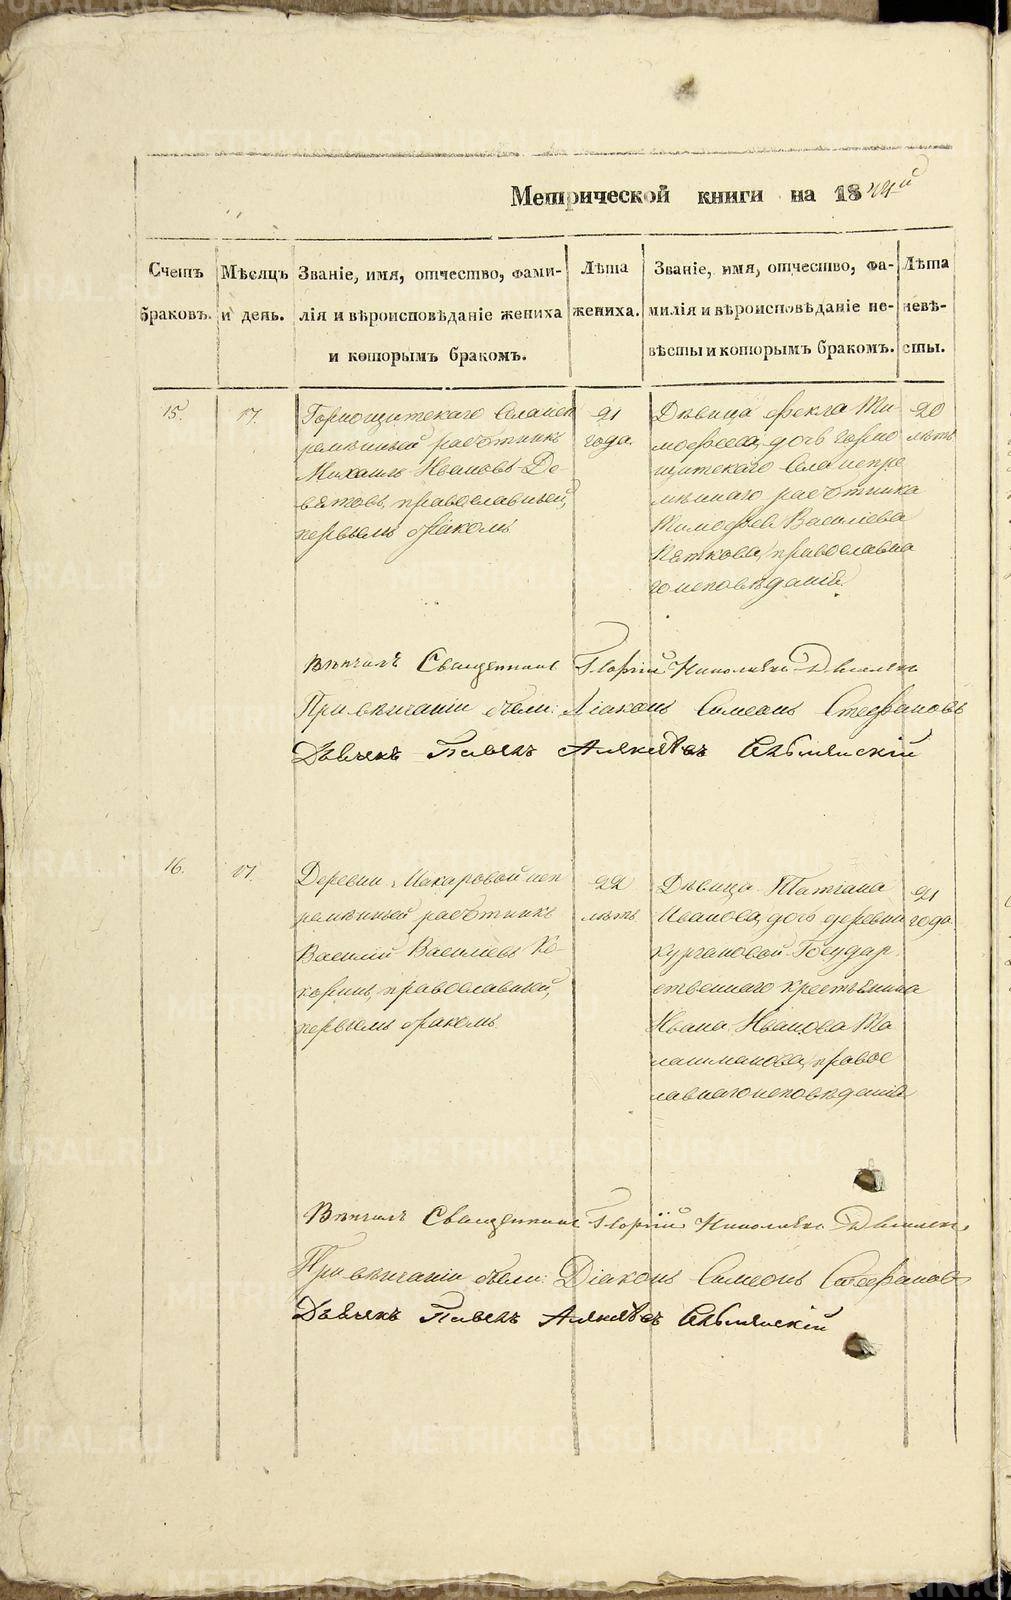 Метрической книги на 1844й
Счетъ браковъ.
Мѣсяцъ и день.
Званіе, имя, отчество, фами-
лія и вѣроисповѣданіе жениха
и которымъ бракомъ.
Лѣта жениха.
Званіе, имя, отчество, фа-
милія и вѣроисповѣданіе не-
вѣсты и которымъ бракомъ.
Лѣта невѣ-
сты.
15.
17.
Горнощитскаго Села неп
ремѣнный работникъ
Михаилъ Ивановъ Де-
вятовъ, православный,
первымъ бракомъ
21
года.
Дѣвица Ѳекла Ти
моѳеева, дочь горно
щитскаго Села непре
мѣннаго работника
Тимоѳея Васильева
Пяткова, православна
го исповѣданія.
20
лѣтъ
Вѣнчалъ Священникъ Георгій
При вѣнчаніи были: Діаконъ Симеонъ Стефановъ
Дьячекъ Павелъ
16.
17.
Деревни Макаровой неп
ремѣнный работникъ
Василій Васильевъ Ко-
коринъ, православный,
первымъ бракомъ
22
лѣтъ
Дѣвица Татіана
Иванова, дочь деревни
Кургановой Государ
ственнаго крестьянина
Ивана Иванова Та
лашманова, правос
лавнаго исповѣданія
21
года
Вѣнчалъ Священникъ Георгій
При вѣнчаніи были: Діаконъ Симеонъ Стефановъ
Дьячекъ Павелъ
METRIKI.GASO-URAL.RU